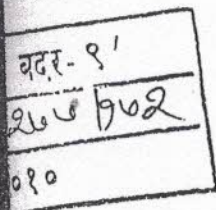 वदर - ९'
२७७ / १७२
०१०